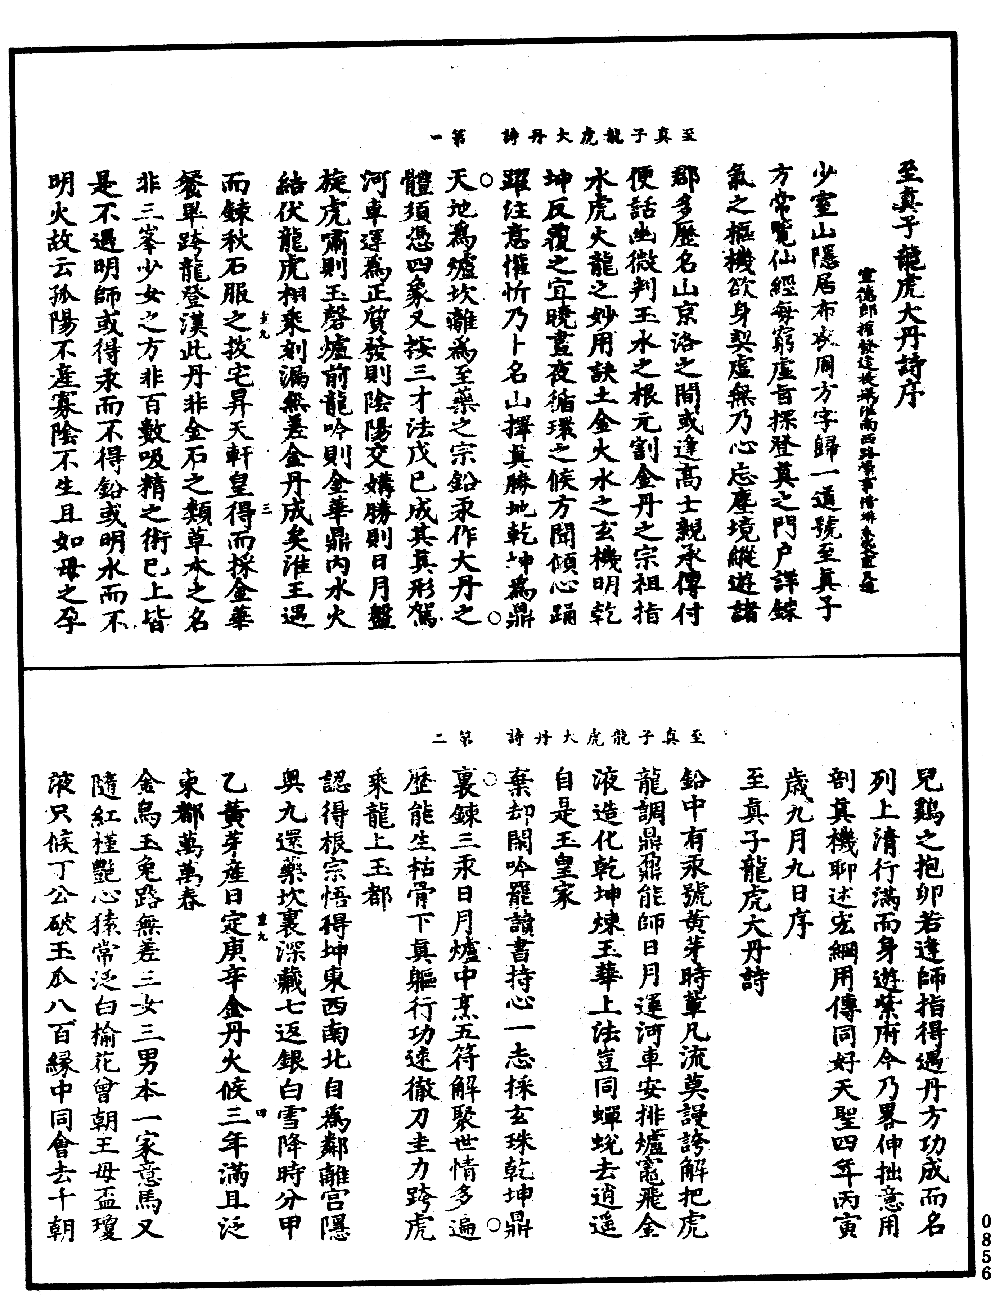 至真子龍虎大丹詩　第一
至真子龍虎大丹詩序
宣德郎
少室山隱居布衣周方字歸一道號至真子
方常覽仙經每窮虛旨探登真之門户詳鍊
氣之樞機欲身契虛無乃心忘塵境縱遊諸
郡多歷名山京洛之間或逢高士親承傳付
便話幽微判玉水之根元割金丹之宗祖指
水虎火龍之妙用訣土金火水之玄機明乾
坤反覆之宜曉晝夜循環之候方聞傾心踊
躍注意懽忻乃卜名山擇真勝地乾坤爲鼎
天地爲爐坎離爲至藥之宗鉛汞作大丹之
體須憑四象又按三才法戊巳成其真形駕
河車運爲正質發則陰陽交媾勝則日月盤
旋虎嘯則玉磬爐前龍吟則金華鼎內水火
結伏龍虎相乘刻漏無差金丹成矣淮王遇
而鍊秋石服之拔宅昇天軒皇得而採金華
餐畢跨龍登漢此丹非金石之類草木之名
非三峯少女之方非百數吸精之術巳上皆
是不遇明師或得汞而不得鉛或明水而不
明火故云孤陽不産寡陰不生且如母之孕
三
至真子龍虎大丹詩　第二
兒鷄之抱卵若逢師指得遇丹方功成而名
列上清行滿而身遊紫府今乃畧伸拙意用
剖真機聊述宏綱用傳同好天聖四年丙寅
歲九月九日序
至真子龍虎大丹詩
鉛中有汞號黃芽時輩凡流莫謾誇解把虎
龍調鼎鼐能師日月運河車安排爐竈飛金
液造化乾坤煉玉華上法豈同蟬蛻去逍遥
自是玉皇家
棄却閑吟罷讀書持心一志採玄珠乾坤鼎
裏鍊三汞日月爐中烹五符解聚世情多遍
歷能生枯骨下真軀行功速徹刀圭力跨虎
乘龍上玉都
認得根宗悟得坤東西南北自爲鄰離宫隱
奥九還藥坎裏深藏七返銀白雪降時分甲
乙黃芽産日定庚辛金丹火候三年滿且泛
東都萬萬春
金烏玉兔路無差三女三男本一家意馬又
隨紅槿艷心猿常泛白榆花曾朝王母盃瓊
液只候丁公破玉瓜八百緣中同會去千朝
四
0856